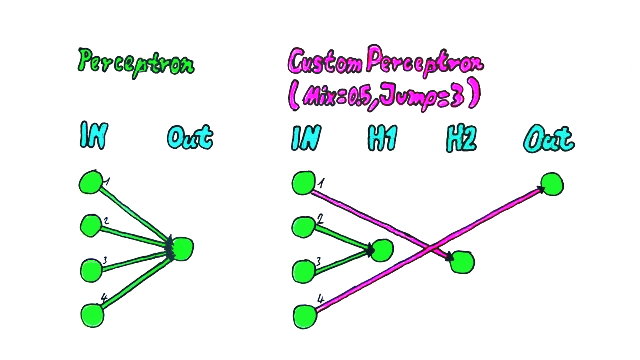 Perceptron
IN Out
1
2
3
4
Custom Perceptron
(Mix=0.5, Jump=3)
IN H1 H2 Out
1
2
3
4